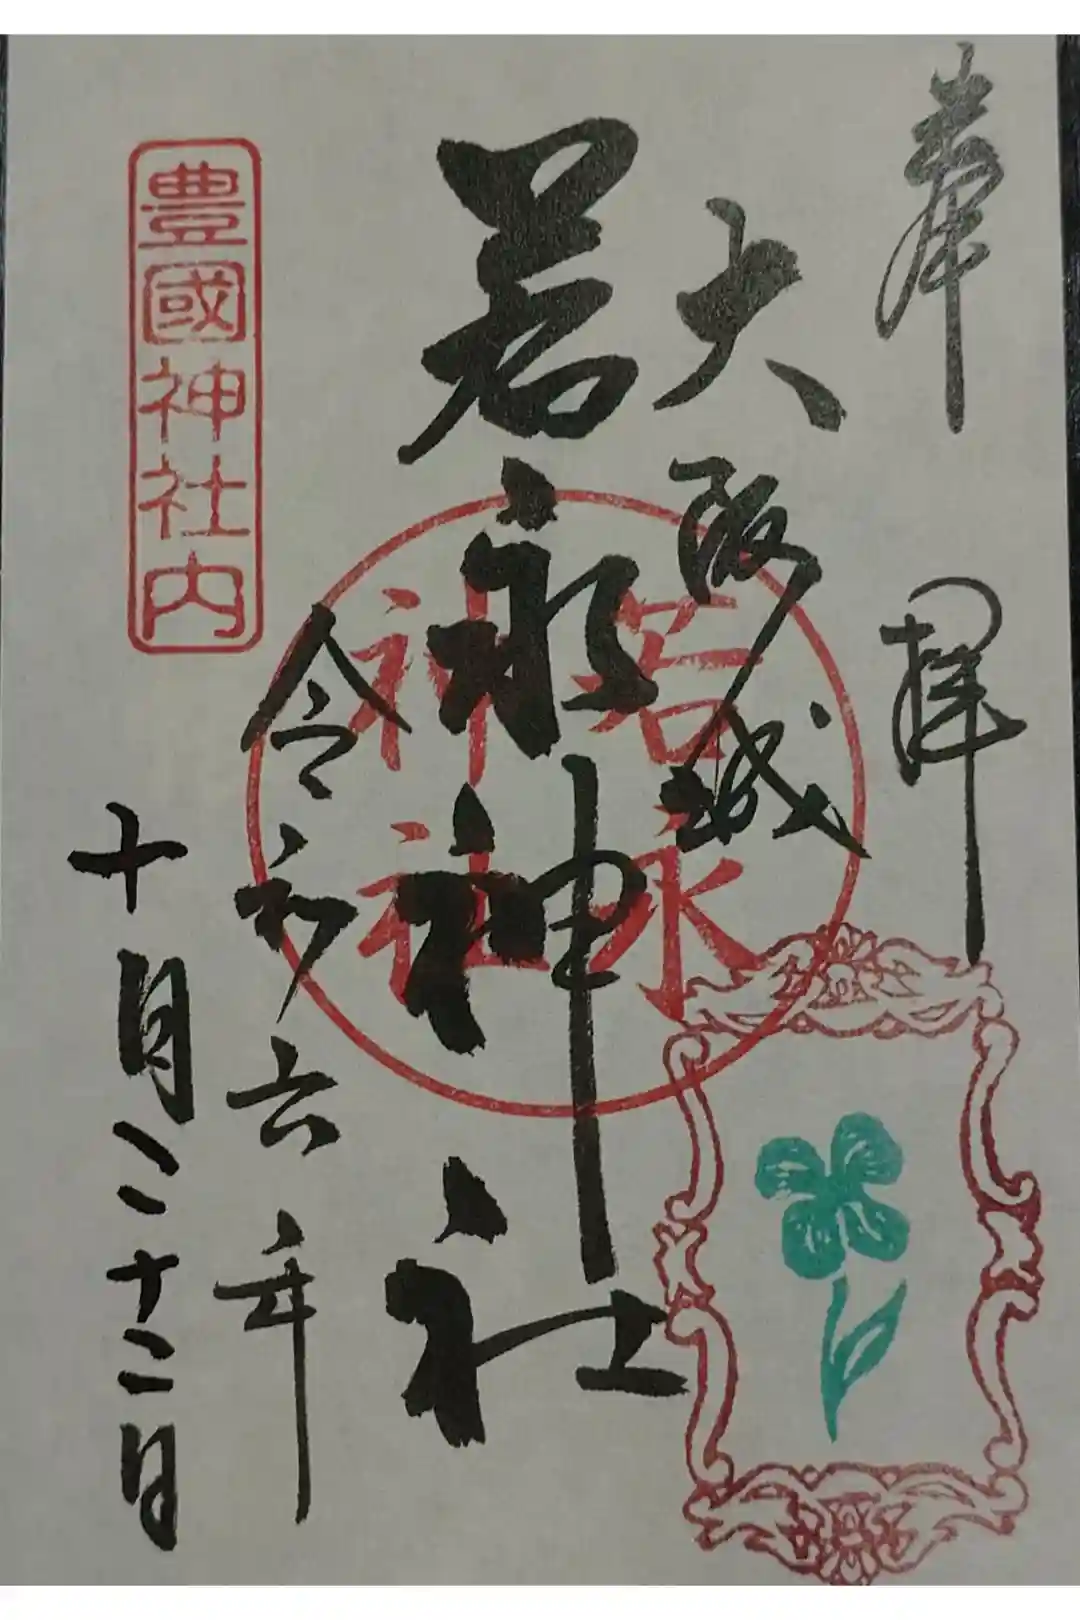 奉拝
大阪城
若永神社
若永
神社
令和六年
十月二十二日
豊國神社内